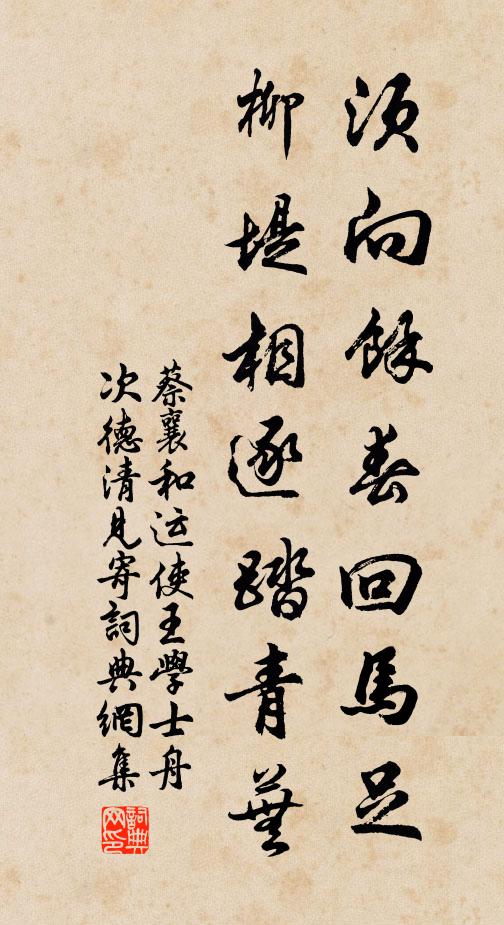 須向餘春回馬足
柳堤相逐踏青蕪
蔡襄和运使王學士舟
次德清見寄詞典網集
詞典网印